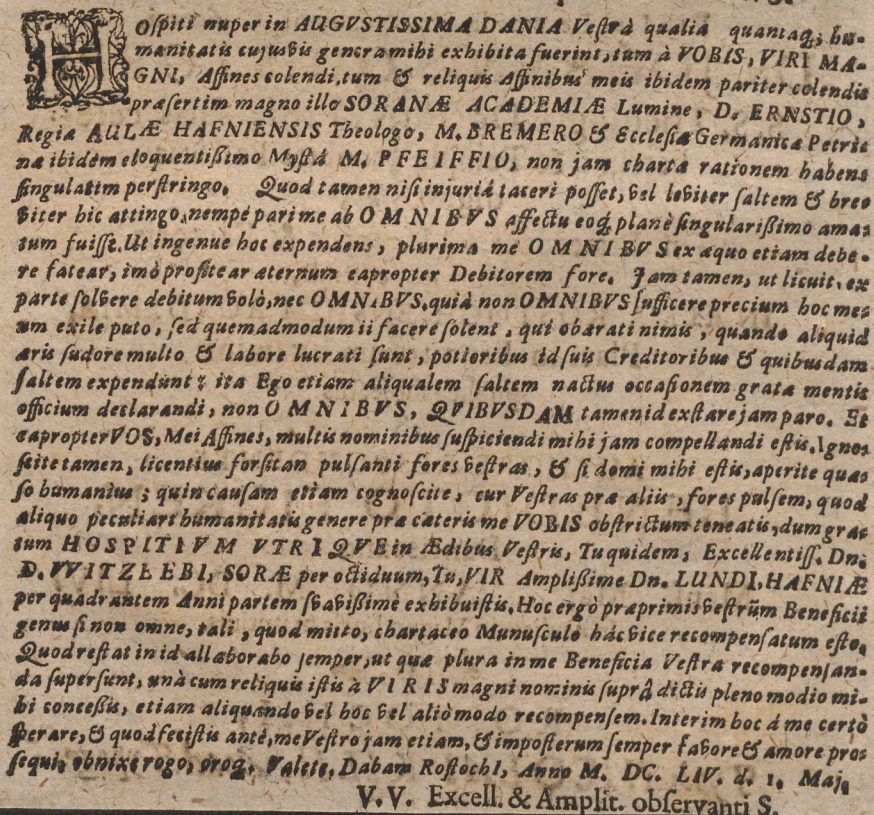 HOspiti nuper in AUGVSTISSIMA DANIA Vestrâ qualia quantaq; hu-
manitatis cujusvis genera mihi exhibita fuerint, tum à VOBIS, VIRI MA-
GNI, Affines colendi, tum & reliquis Affinibus meis ibidem pariter colendis
præsertim magno illo SORANÆ ACADEMIÆ Lumine, D. ERNSTIO,
Regiæ AULÆ HAFNIENSIS Theologo, M. BREMERO & Ecclesiæ Germanicæ Petri-
næ ibidem eloquentißimo Mystâ M. PFEIFFIO, non jam chartæ rationem habens
singulatim perstringo. Quod tamen nisi injuriâ taceri posset, vel leviter saltem & bre-
viter hic attingo, nempè pari me ab OMNIBVS affectu eoq; planè singularißimo ama-
tum fuisse. Ut ingenue hoc expendens, plurima me OMNIBVS ex æquo etiam debe-
re fatear, imò profitear æternum eapropter Debitorem fore. Jam tamen, ut licuit, ex
parte solvere debitum volò, nec OMNIBVS, quià non OMNIBVS sufficere precium hoc me-
um exile puto, sed quemadmodum ii facere solent, qui obærati nimis, quando aliquid
æris sudore multo & labore lucrati sunt, potioribus id suis Creditoribus & quibusdam
saltem expendunt; ita Ego etiam aliqualem saltem nactus occasionem gratæ mentis
officium declarandi, non OMNIBVS, QVIBVSDAM tamen id exstare jam paro. Et
eapropter VOS, Mei Affines, multis nominibus suspiciendi mihi jam compellandi estis. Igno-
scite tamen, licentius forsitan pulsanti fores vestras, & si domi mihi estis, aperite quæ-
so humanius; quin causam etiam cognoscite, cur Vestras præ aliis, fores pulsem, quod
aliquo peculiari humanitatis genere præ cæteris me VOBIS obstrictum teneatis, dum gra-
tum HOSPITIVM VTRIQVE in Ædibus Vestris, Tu quidem, Excellentiss. Dn.
D. VVITZLEBI, SORÆ per octiduum, Tu, VIR Amplißime Dn. LUNDI, HAFNIÆ
per quadrantem Anni partem svavißimè exhibuistis. Hoc ergò præprimis vestrûm Beneficii
genus si non omne, tali, quod mitto, chartaceo Munusculo hâc vice recompensatum esto.
Quod restat in id allaborabo semper, ut quæ plura in me Beneficia Vestra recompensan-
da supersunt, unà cum reliquis istis à VIRIS magni nominis suprâ dictis pleno modio mi-
hi concessis, etiam aliquando vel hoc vel aliò modo recompensem. Interim hoc á me certò
sperare, & quod fecistis antè, me Vestro jam etiam, & imposterum semper favore & amore pro-
sequi, obnixe rogo, oroq. Valete, Dabam RostochI, Anno M. DC. LIV. d. 1. Maj.
V. V. Excell. & Amplit. observanti S.